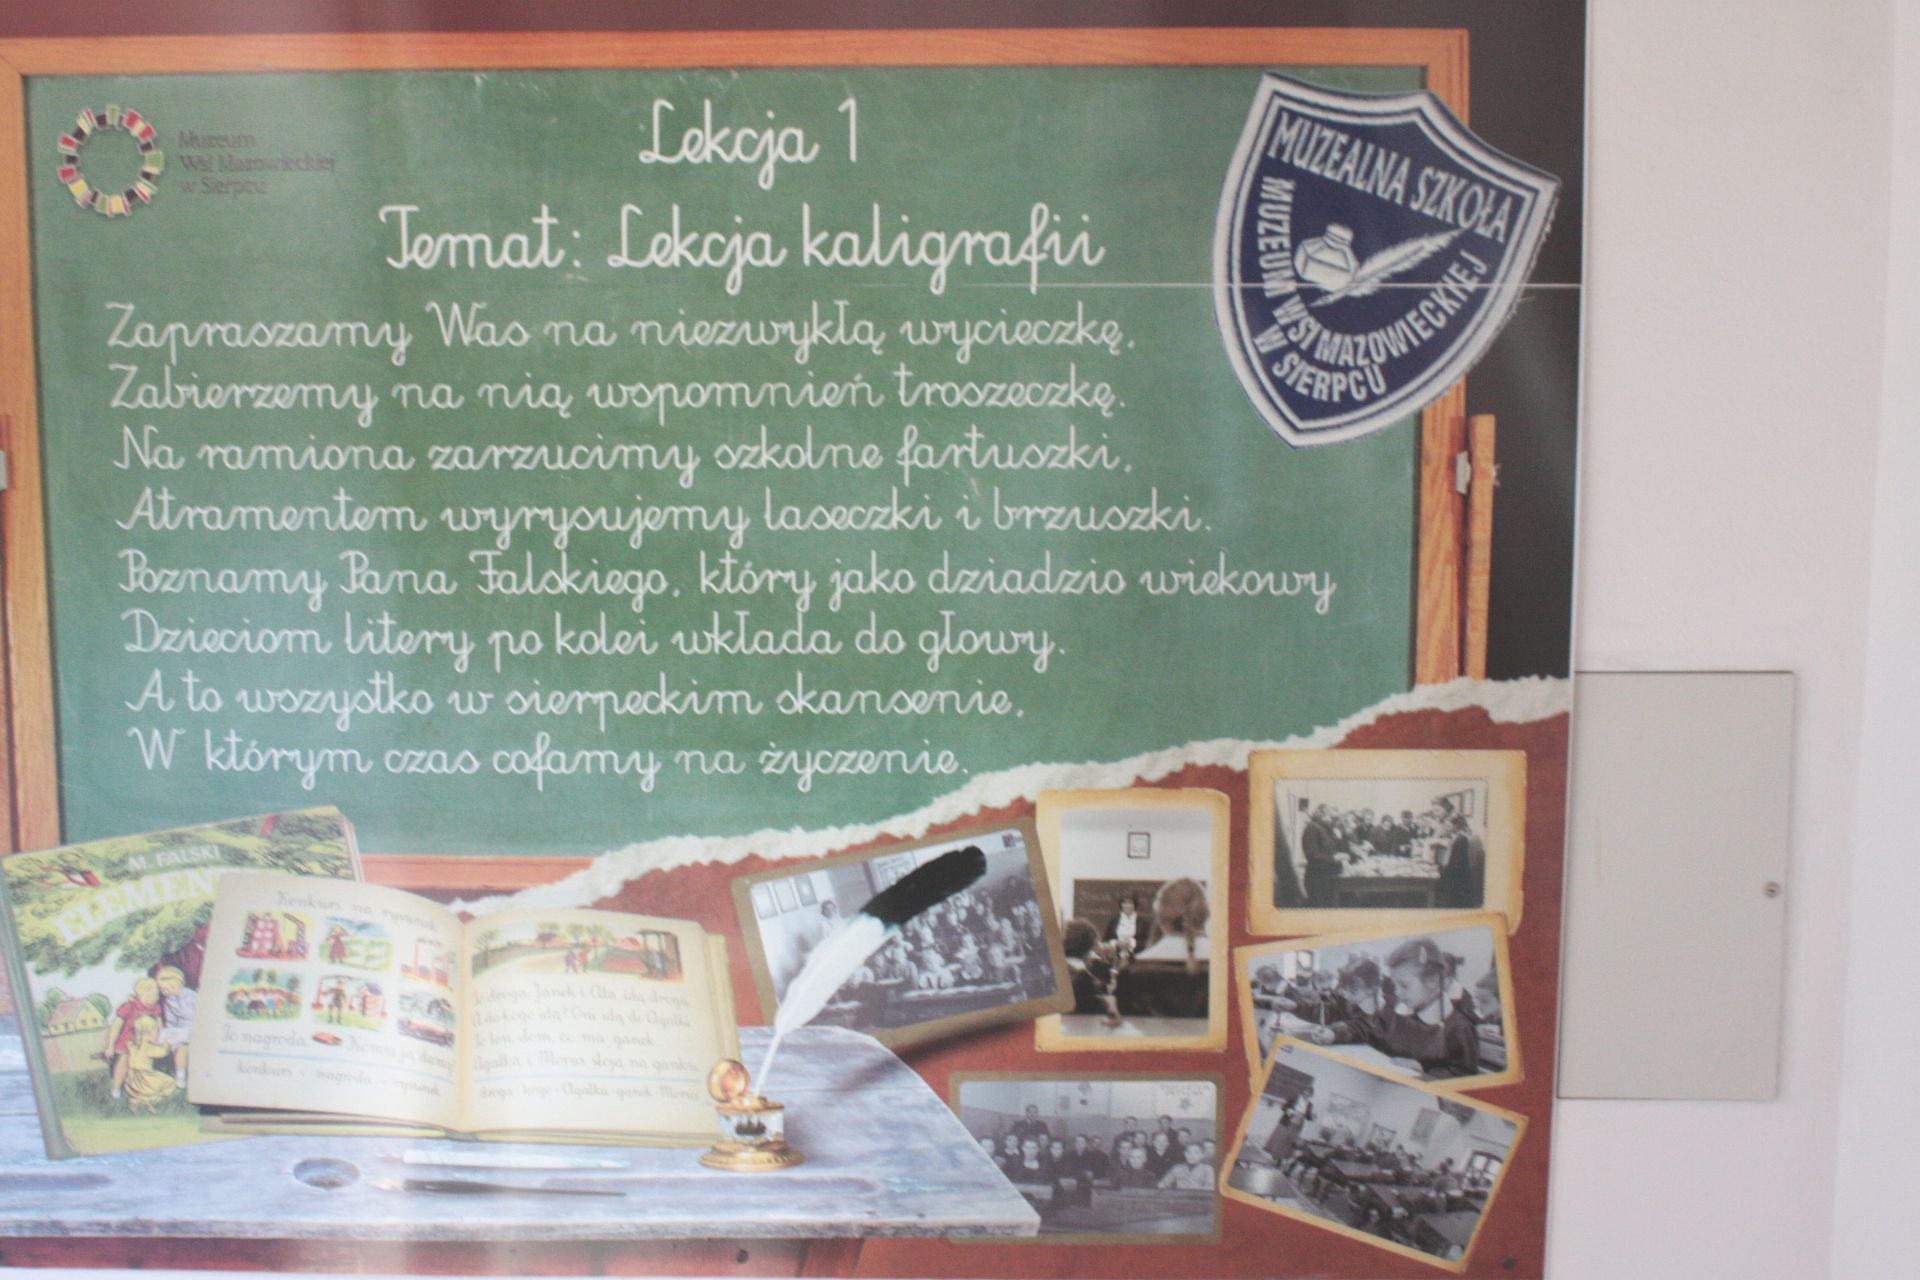 Muzeum
Wsi Mazowieckiej
w Sierpcu
Lekcja 1
Temat: Lekcja kaligrafii
MUZEALNA SZKOŁA
MUZEUM WSI MAZOWIECKIEJ
W SIERPCU
Zapraszamy Was na niezwykłą wycieczkę,
Zabierzemy na nią wspomnień troszeczkę.
Na ramiona zarzucimy szkolne fartuszki,
Atramentem wyrysujemy laseczki i brzuszki.
Poznamy Pana Falskiego, który jako dziadzio wiekowy
Dzieciom litery po kolei wkłada do głowy.
A to wszystko w sierpeckim skansenie,
W którym czas cofamy na życzenie.
M. FALSKI
ELEMEN
Konkurs na rysunek
To nagroda. Komu ją damy?
konkurs - nagroda - rysunek
To droga. Janek i Ala idą drogą.
A do kogo idą? Oni idą do Agatki.
To ten dom, co ma ganek.
Agatka i Mruś stoją na ganku.
droga - kogo - Agatka - ganek - Mruś